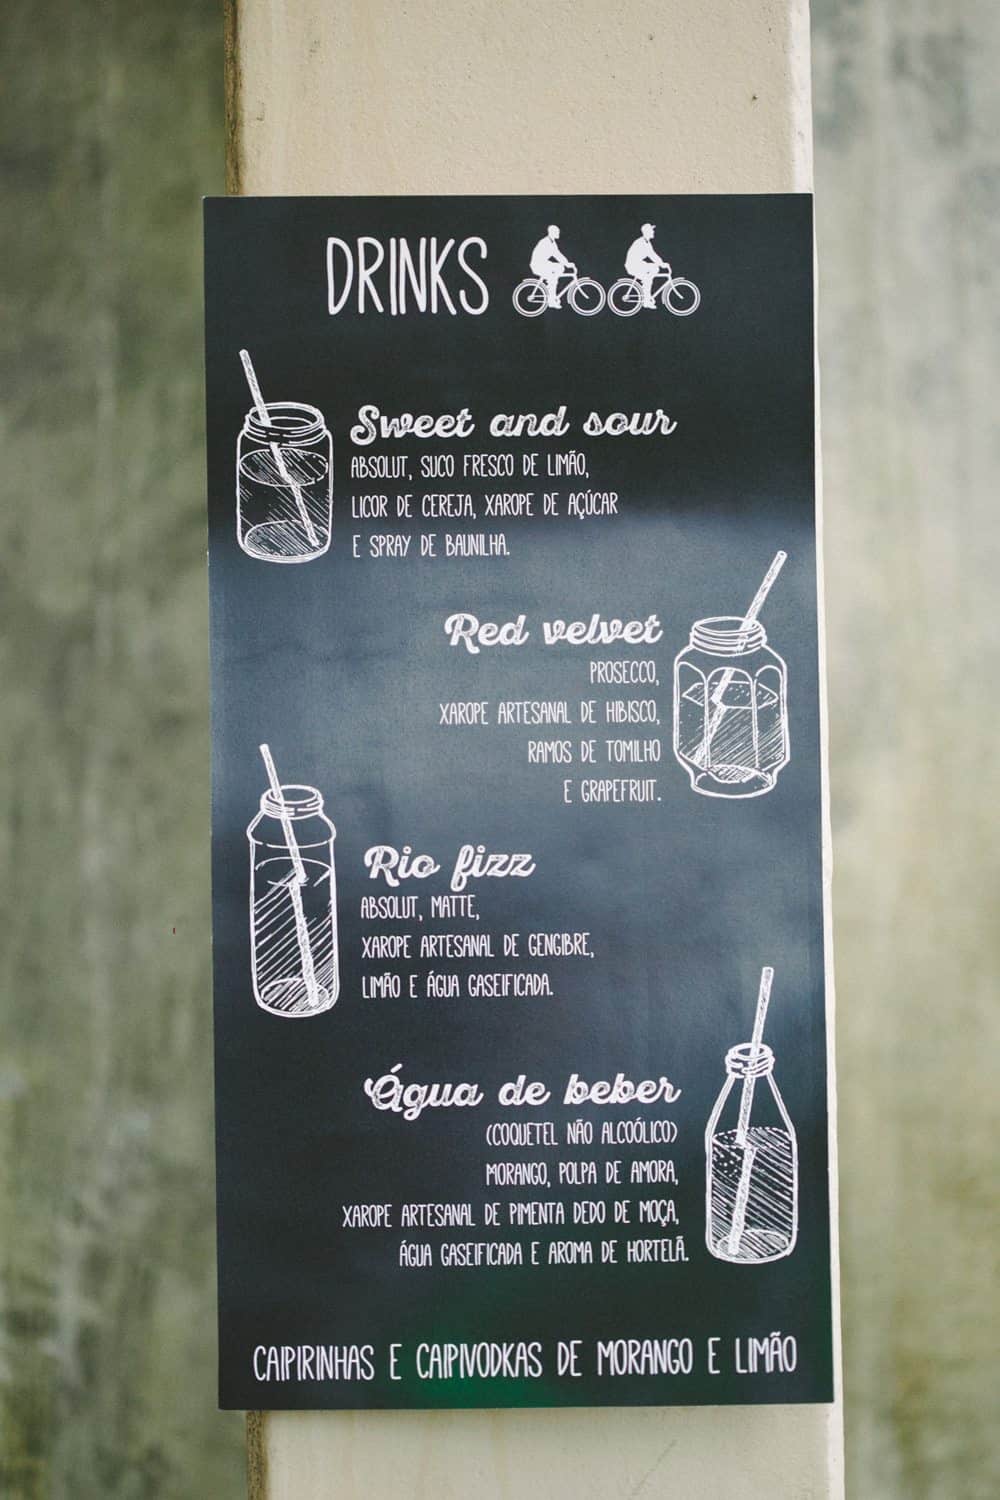 DRINKS
Sweet and sour
ABSOLUT, SUCO FRESCO DE LIMÃO,
LICOR DE CEREJA, XAROPE DE AÇÚCAR
E SPRAY DE BAUNILHA.
Red velvet
PROSECCO,
XAROPE ARTESANAL DE HIBISCO,
RAMOS DE TOMILHO
E GRAPEFRUIT.
Rio fizz
ABSOLUT, MATTE,
XAROPE ARTESANAL DE GENGIBRE,
LIMÃO E ÁGUA GASEIFICADA.
Água de beber
(COQUETEL NÃO ALCOÓLICO)
MORANGO, POLPA DE AMORA,
XAROPE ARTESANAL DE PIMENTA DEDO DE MOÇA,
ÁGUA GASEIFICADA E AROMA DE HORTELÃ.
CAIPIRINHAS E CAIPIVODKAS DE MORANGO E LIMÃO